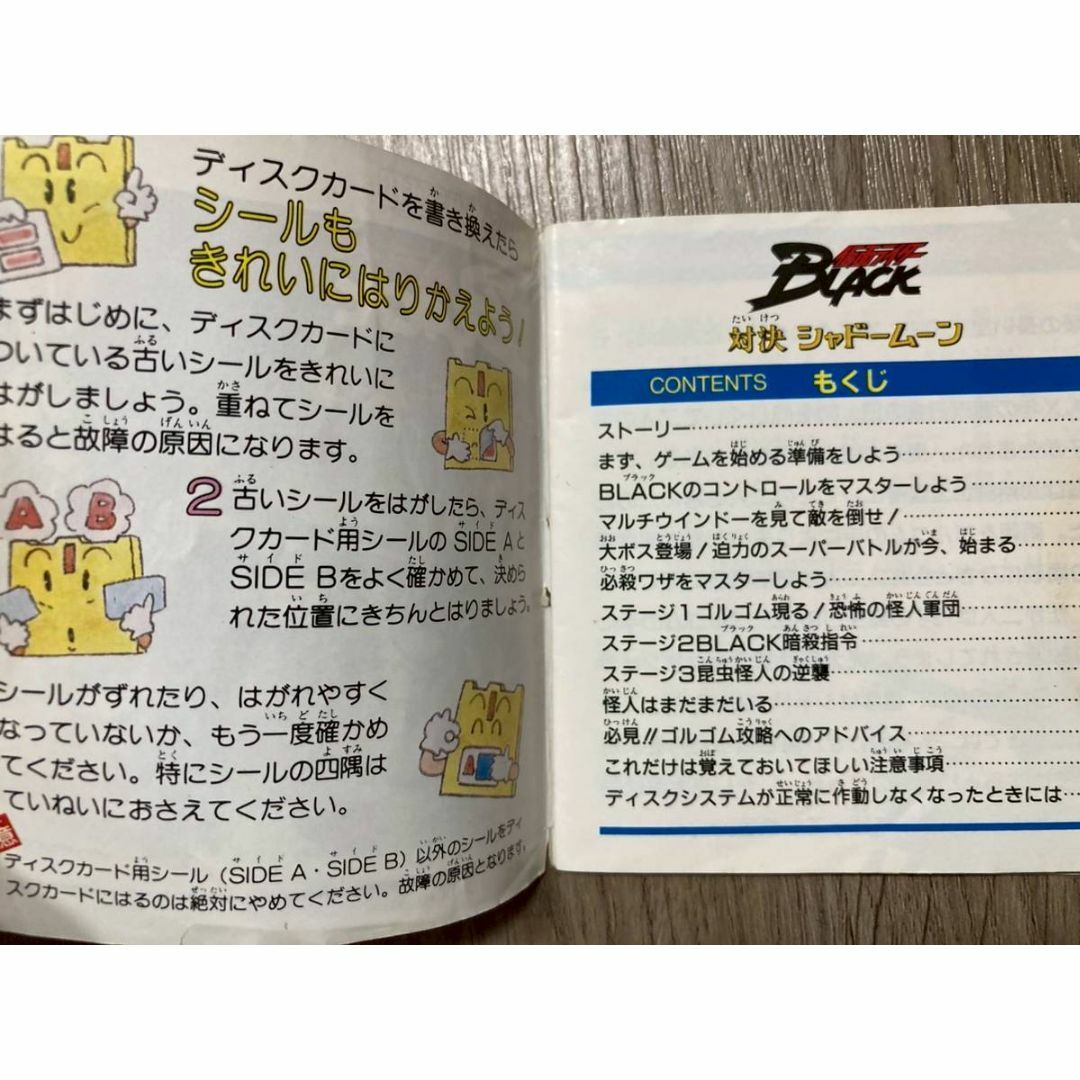 ディスクカードを書き換えたら
シールも
きれいにはりかえよう!
まずはじめに、ディスクカードに
ついている古いシールをきれいに
はがしましょう。重ねてシールを
はると故障の原因になります。
A B
2 古いシールをはがしたら、ディス
クカード用シールの SIDE Aと
SIDE Bをよく確かめて、決めら
れた位置にきちんとはりましょう。
シールがずれたり、はがれやすく
なっていないか、もう一度確かめ
てください。特にシールの四隅は
ていねいにおさえてください。
ディスクカード用シール(SIDE A・SIDE B)以外のシールをディ
スクカードにはるのは絶対にやめてください。故障の原因となります。
仮面ライダー
BLACK
対決 シャドームーン
CONTENTS もくじ
ストーリー
まず、ゲームを始める準備をしよう
BLACKのコントロールをマスターしよう
マルチウインドーを見て敵を倒せ!
大ボス登場!迫力のスーパーバトルが今、始まる
必殺ワザをマスターしよう
ステージ1ゴルゴム現る!恐怖の怪人軍団
ステージ2BLACK暗殺指令
ステージ3昆虫怪人の逆襲
怪人はまだまだいる
必見!!ゴルゴム攻略へのアドバイス
これだけは覚えておいてほしい注意事項
ディスクシステムが正常に作動しなくなったときには